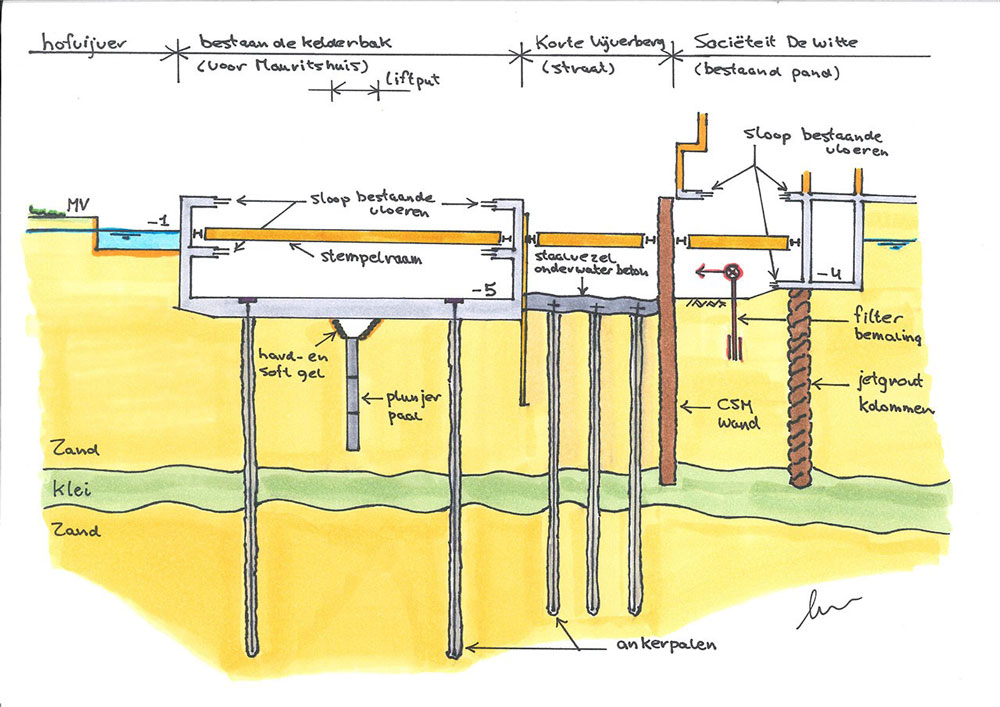 hofvijver
bestaande kelderbak
(voor Mauritshuis)
liftput
Korte Vijverberg
(straat)
Sociëteit De Witte
(bestaand pand)
sloop bestaande
vloeren
MV
-1
sloop bestaande
vloeren
stempelraam
staalvezel
onderwaterbeton
-5
-4
hard- en
soft gel
plunjer
paal
filter
bemaling
jetgrout
kolommen
CSM
wand
Zand
klei
Zand
ankerpalen